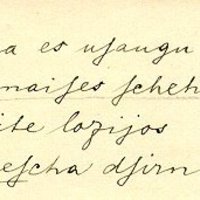 a es usaugu
naises scheh
ite lozijos
escha dsirn